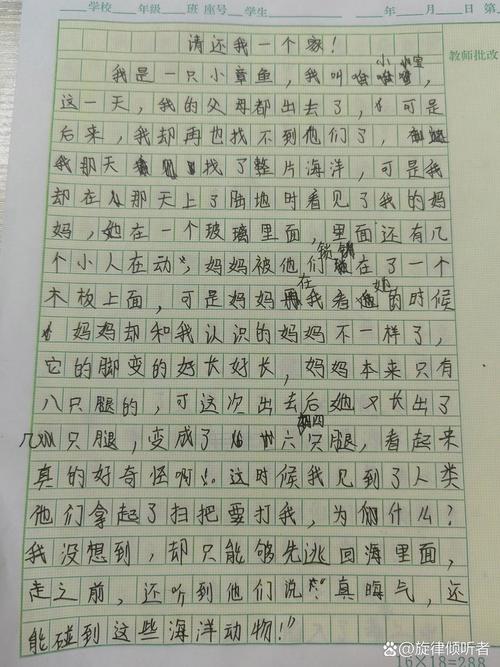 学校 年级 班 座号 学生 年 月 日 第
教师批改
请还我一个家！
我是一只小章鱼，我叫哈哈小哩，
这一天，我的父母都出去了，可是
后来，我却再也找不到他们了，
我那天找了整片海洋，可是我
却在那天上了陆地时看见了我的妈
妈，她在一个玻璃里面，里面还有几
个小人在动"，妈妈被他们锁在了一个
木板上面，可是妈妈在我看她的时候
妈妈却和我认识的妈妈不一样了，
它的脚变的好长好长，妈妈本来只有
八只腿的，可这次出去后她又长出了
几只腿，变成了六四只腿，看起来
真的好奇怪啊！这时候我见到了人类
他们拿起了扫把要打我，为什么？
我没想到，却只能够先逃回海里面，
走之前，还听到他们说："真晦气，还
能碰到这些海洋动物！"
6×18=288
@旋律倾听者